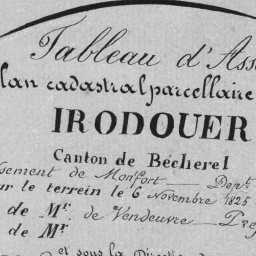 Tableau d'Ass
lan cadastral parcellaire
IRODOUER
Canton de Bécherel
sement de Monfort Dept
ur le terrein le 6 Novembre 1825
de Mr. de Vendeuvre Pre
de Mr.
et sous la Direction